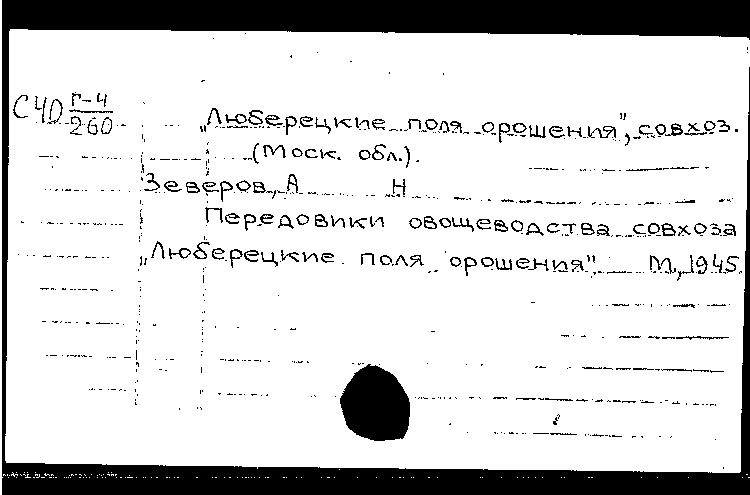 С40 Г-4/260
„Люберецкие поля орошения", совхоз.
(Моск. обл.).
Зеверов, А Н
Передовики овощеводства совхоза
„Люберецкие поля орошения". М., 1945.